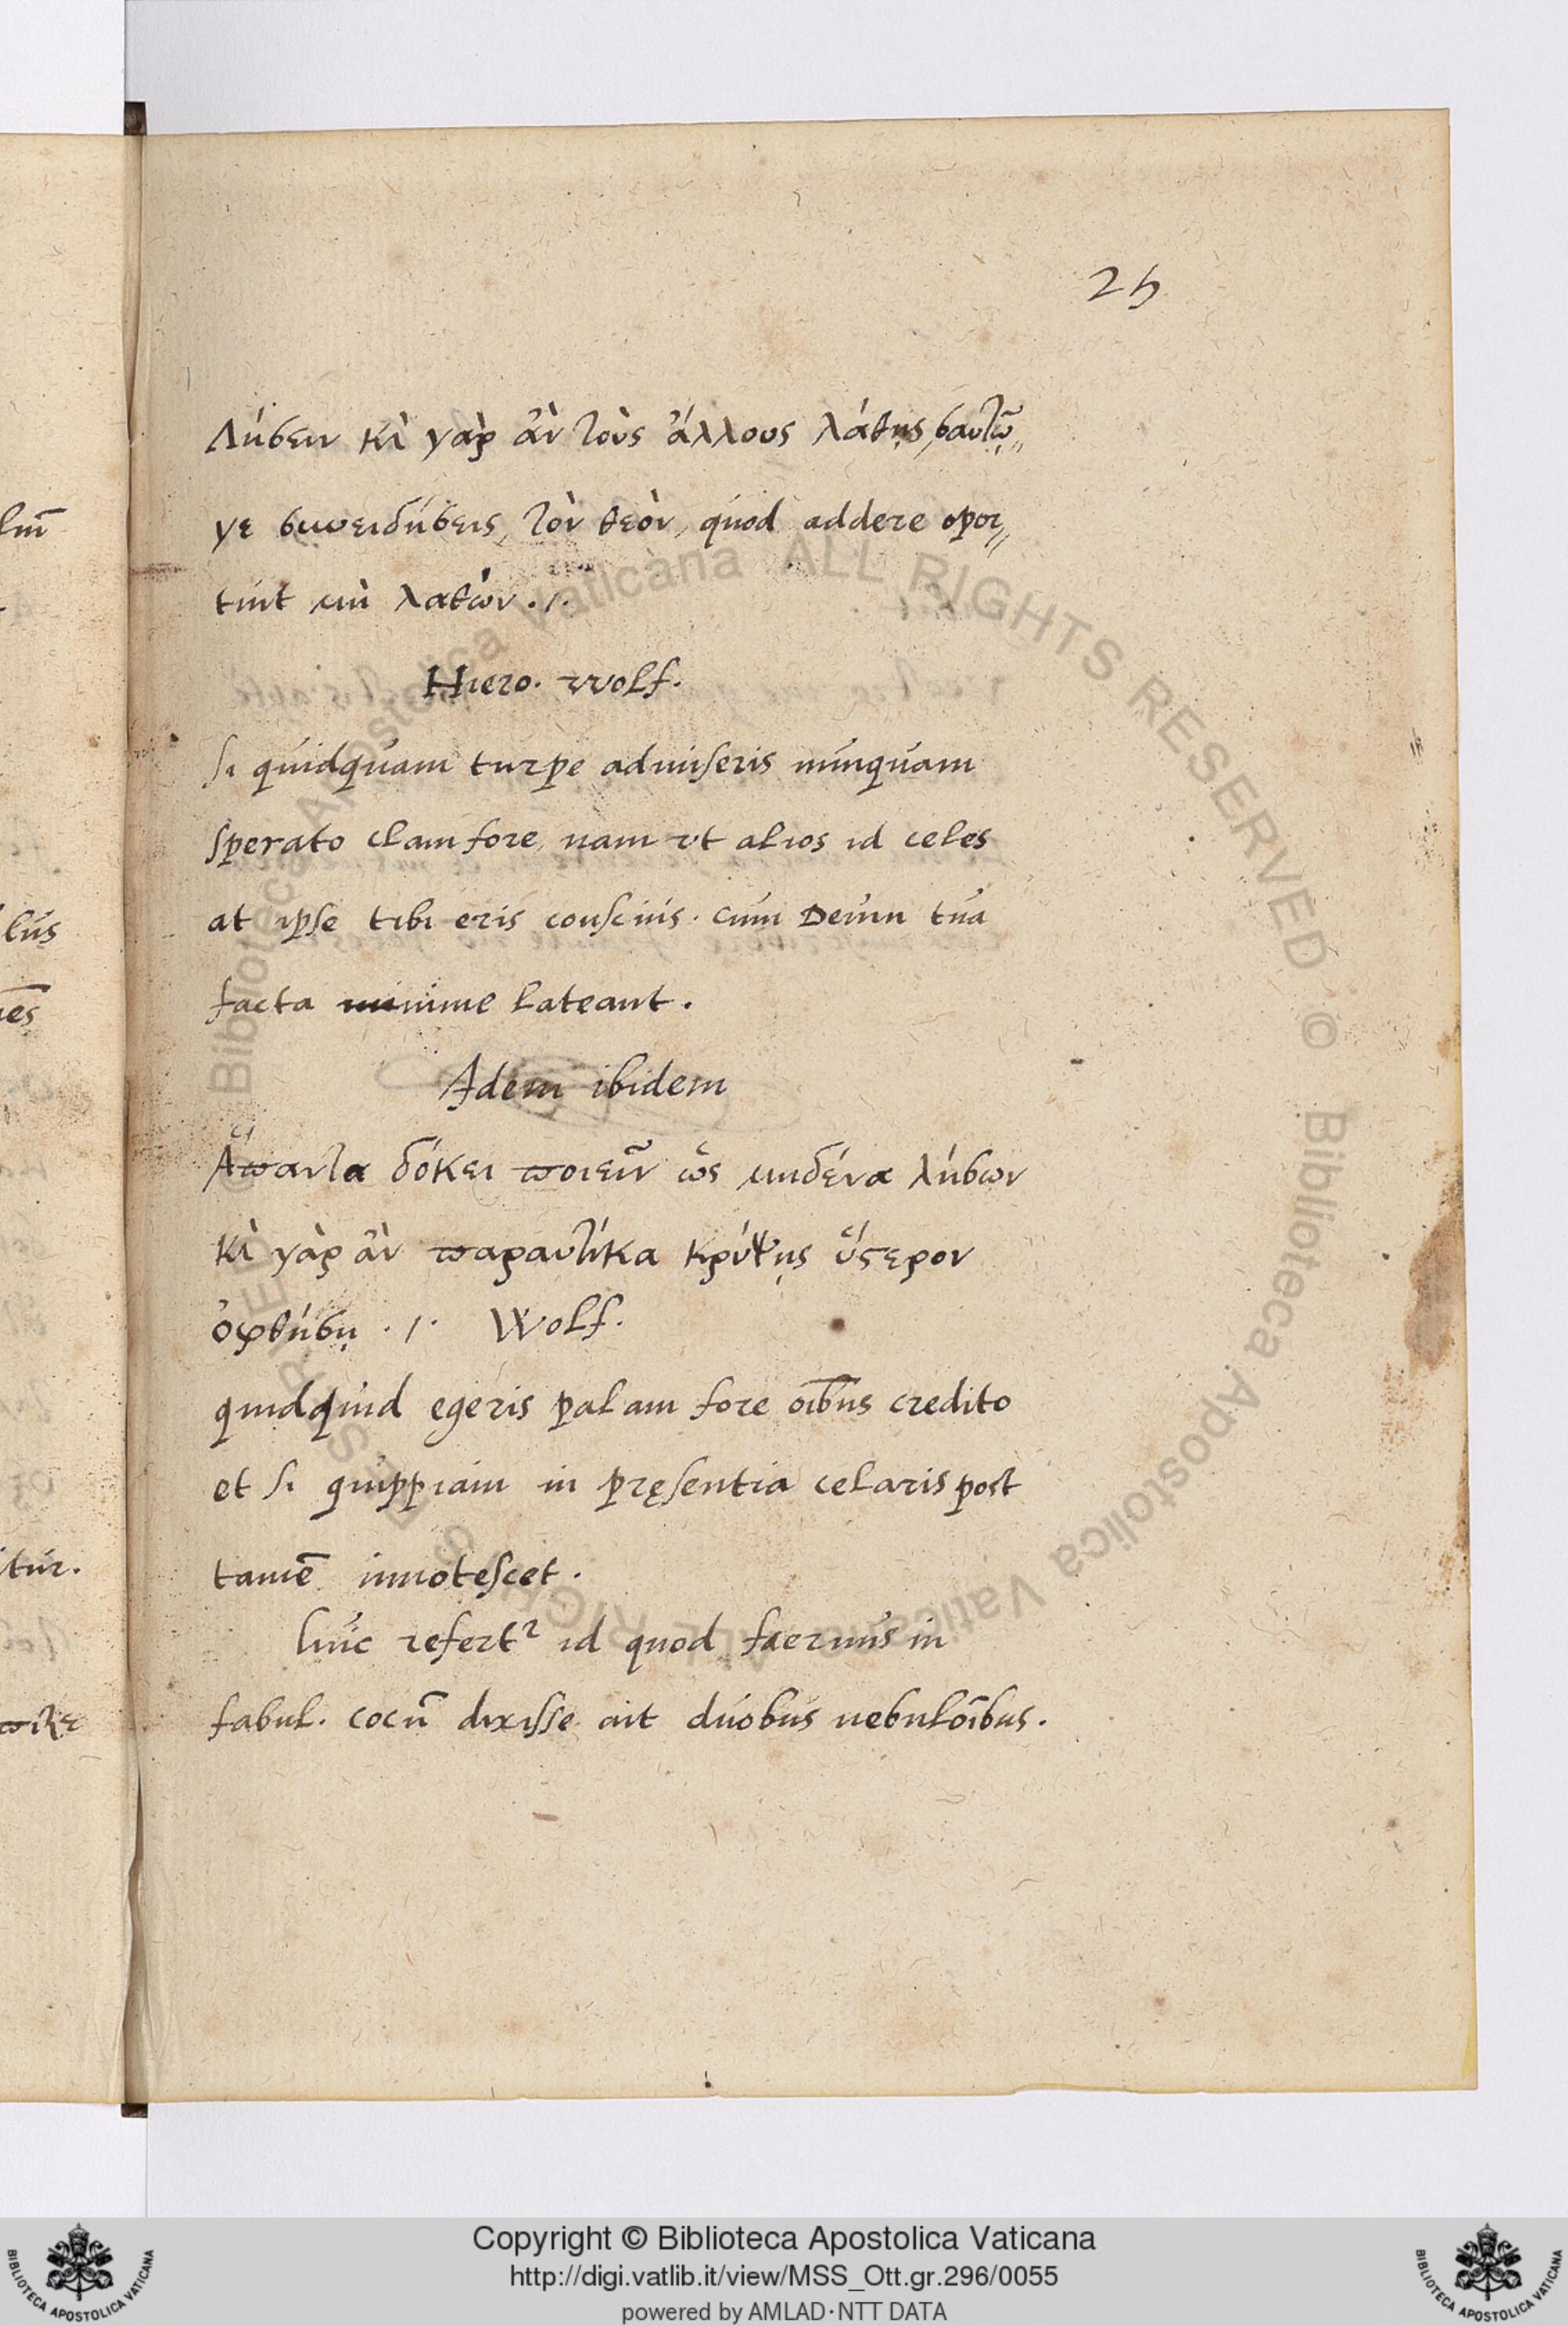 25
Λήσειν κὶ γὰρ ἂν τοὺς ἄλλους λάθῃς, σαυτῷ
γε συνειδήσεις, τὸν θεὸν, quod addere opor
tuit μὴ λαθών ./.
Hiero. Wolf.
Si quidquam turpe admiseris nunquam
sperato clam fore, nam ut alios id celes
at ipse tibi eris conscius. cum Deum tua
facta minime lateant.
Idem ibidem
Ἅπαντα δόκει ποιεῖν ὡς μηδένα λήσων
κὶ γὰρ ἂν παραυτίκα κρύψῃς ὕστερον
ὀφθήσῃ ./. Wolf.
quidquid egeris palam fore oı̅bus credito
et si quippiam in pręsentia celaris post
tamē innotescet.
huic refertr id quod faernus in
fabul. cocū dixisse ait duobus nebulōıbus.
lm̄
lus
nēs
itur.
Copyright © Biblioteca Apostolica Vaticana
http://digi.vatlib.it/view/MSS_Ott.gr.296/0055
powered by AMLAD·NTT DATA
BIBLIOTECA APOSTOLICA VATICANA
BIBLIOTECA APOSTOLICA VATICANA
© Biblioteca Apostolica Vaticana ALL RIGHTS RESERVED
© Biblioteca Apostolica Vaticana ALL RIGHTS RESERVED